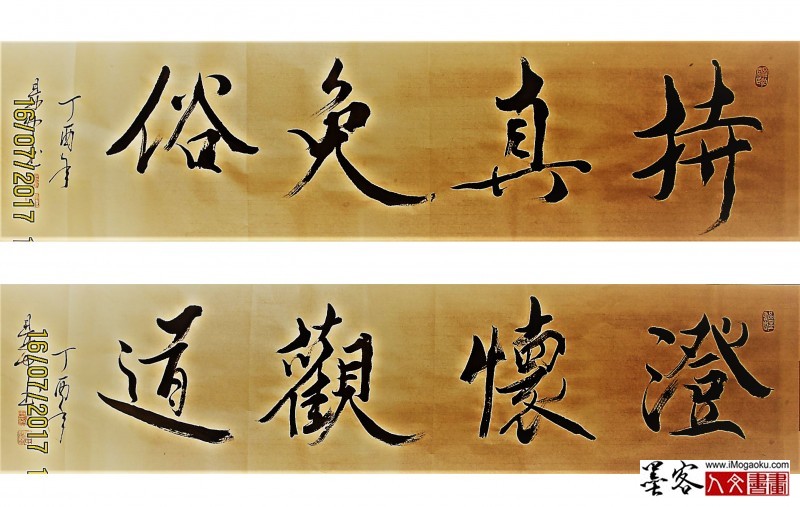 持真免俗
丁酉年
16/07/2017 1
澄懷觀道
丁酉年
16/07/2017 1
墨客
www.iMogaoku.com
人文書畫